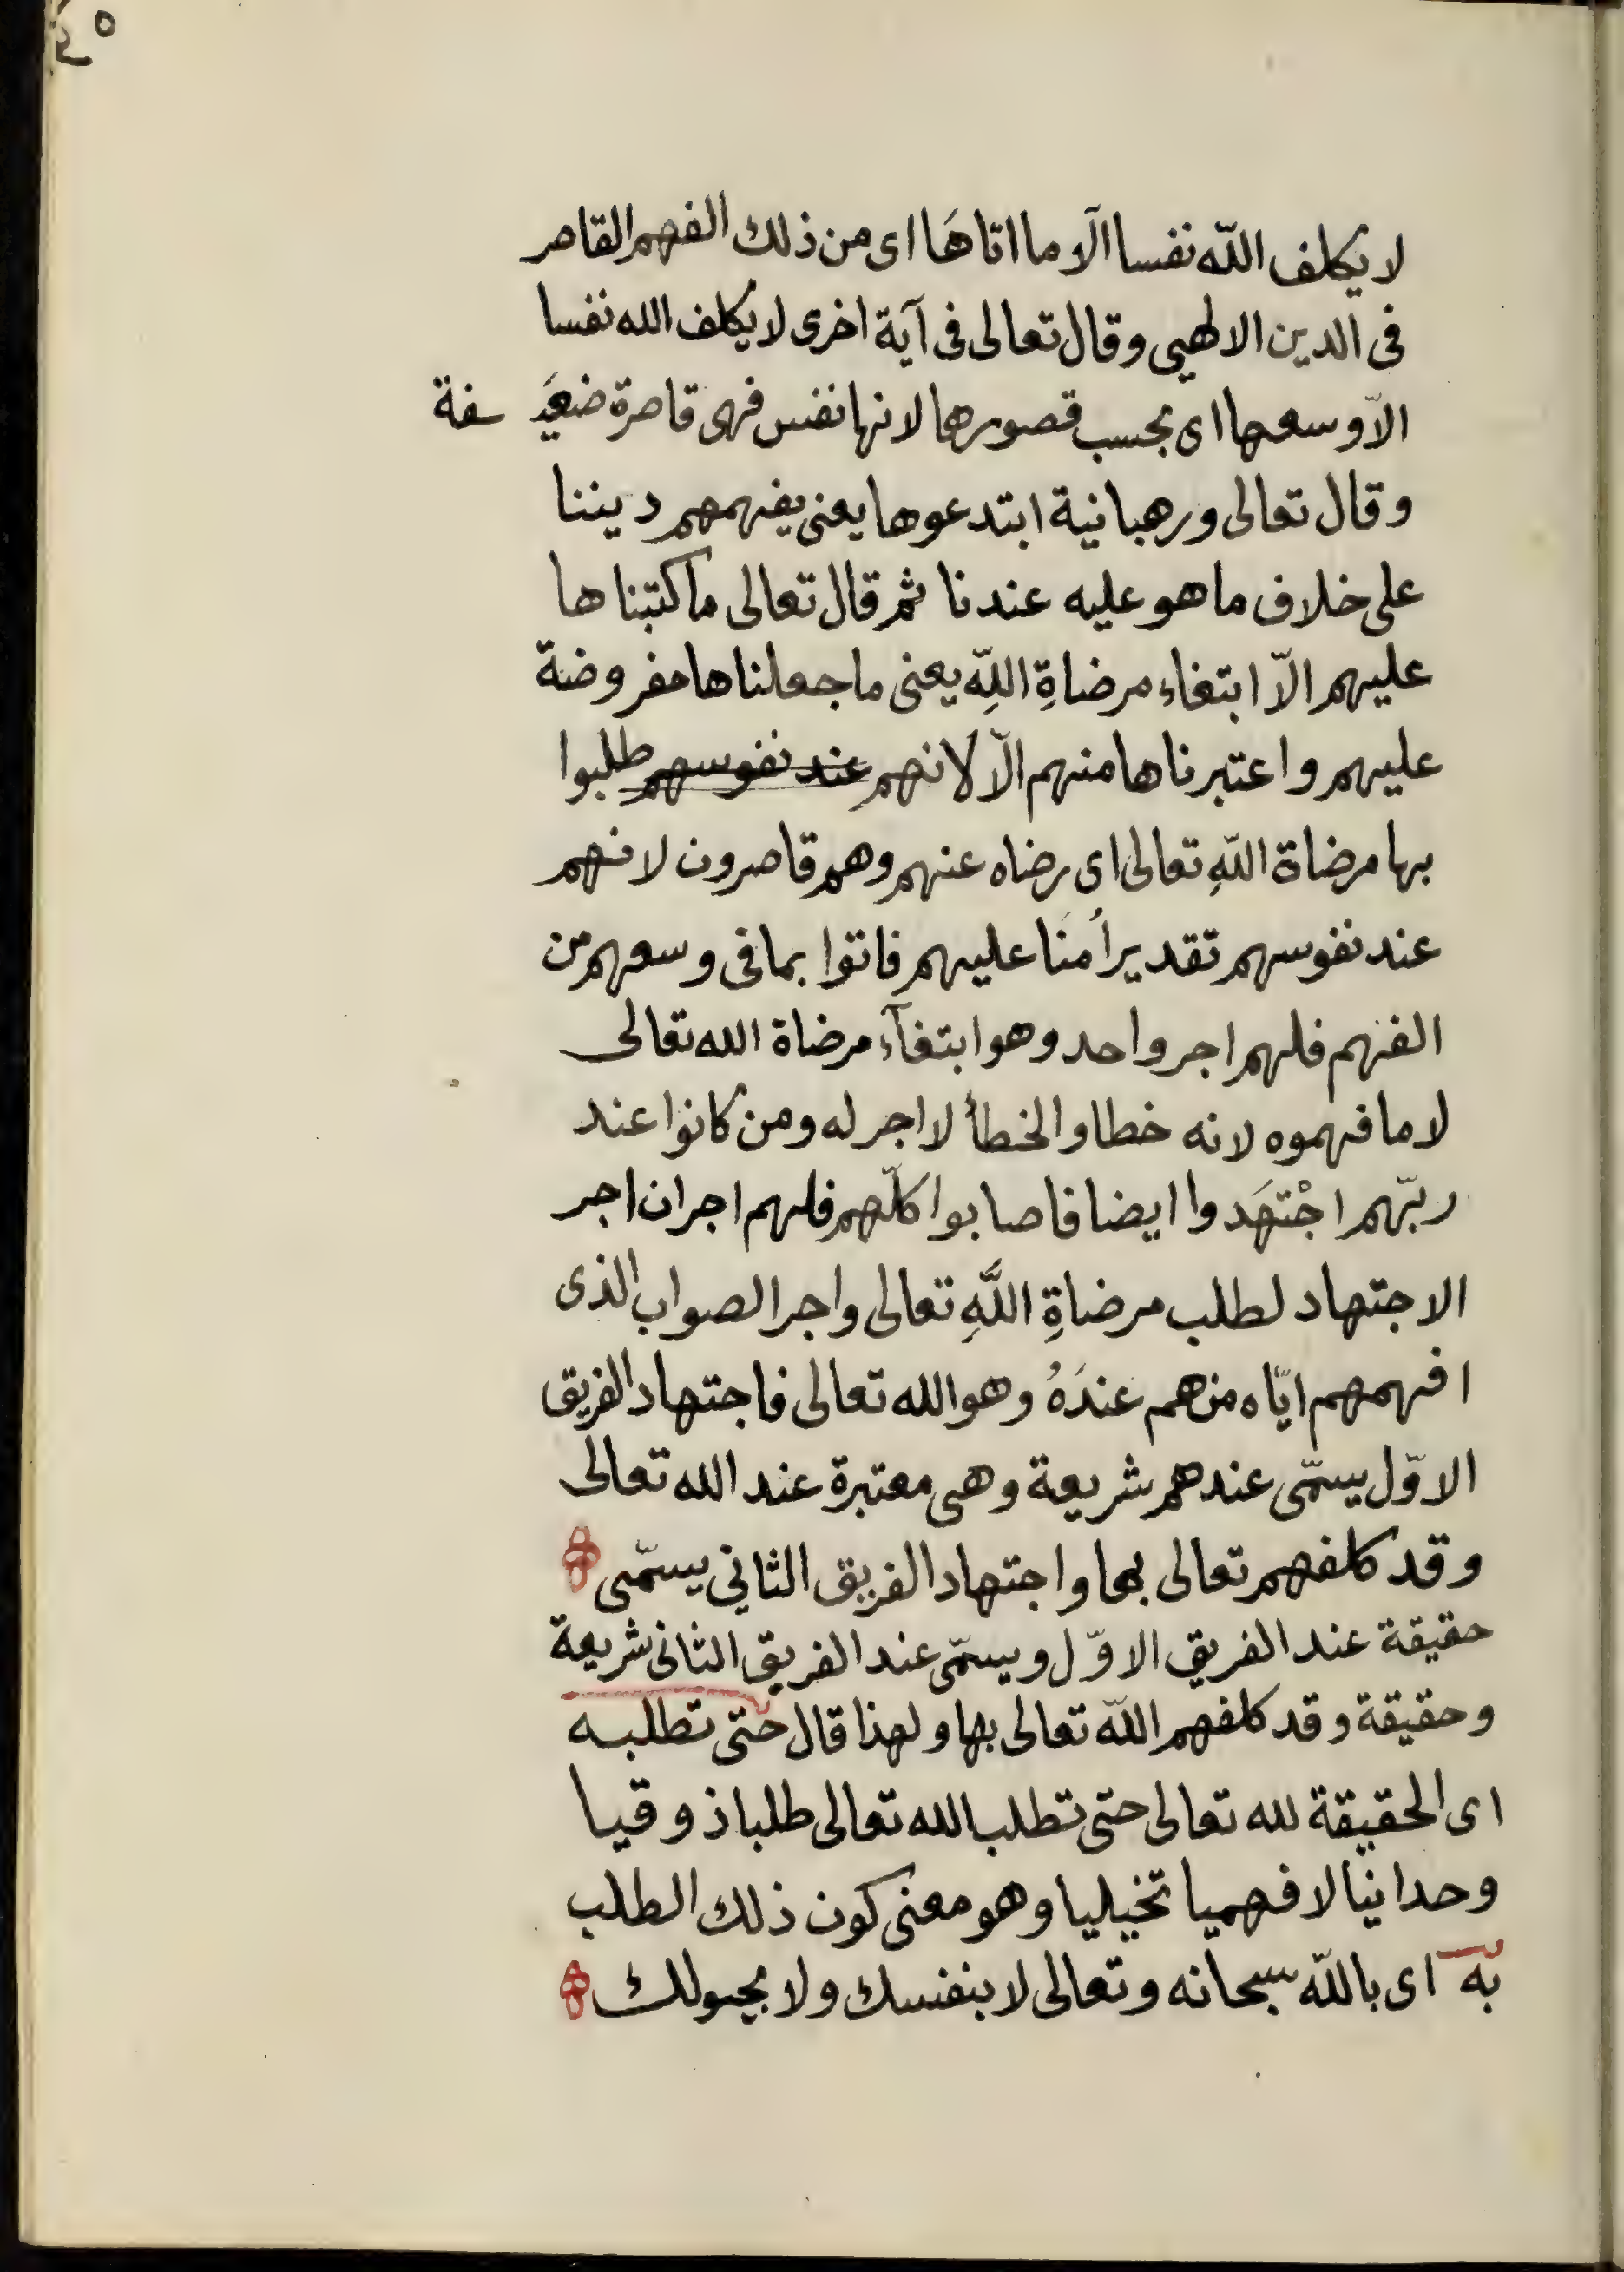 ٤٥
لا يكلف اللّه نفسا الّا ما اتاهَا اى من ذلك الفهم القاصر
فى الدين الالهى وقال تعالى فى آية اخرى لا يكلف الله نفسا
الاّ وسعها اى بحسب قصورها لانها نفس فهى قاصرة ضعيفة
وقال تعالى ورهبانية ابتدعوها يعنى بفهمهم ديننا
على خلاف ما هو عليه عندنا ثم قال تعالى ما كتبناها
عليهم الاّ ابتغاء مرضاةِ اللّهِ يعنى ما جعلناها مفروضة
عليهم واعتبرناها منهم الاّ لانهم عند نفوسهم طلبوا
بها مرضاة اللّهِ تعالى اى رضاه عنهم وهم قاصرون لانهم
عند نفوسهم تقديراً منّا عليهم فاتوا بما فى وسعهم من
الفهم فلهم اجر واحد وهو ابتغآء مرضاة الله تعالى
لا ما فهموه لانه خطا والخطأ لا اجر له ومن كانوا عند
ربّهم اجْتهَدوا ايضا فاصابوا كلّهم فلهم اجران اجر
الاجتهاد لطلب مرضاةِ اللَّهِ تعالى واجر الصواب الذى
افهمهم ايّاه من هم عندَهُ وهو الله تعالى فاجتهاد الفريق
الاوّل يسمّى عندهم شريعة وهى معتبرة عند الله تعالى
وقد كلفهم تعالى بها واجتهاد الفريق الثاني يسمّى
حقيقة عند الفريق الاوّل ويسمّى عند الفريق الثانى شريعة
وحقيقة وقد كلفهم اللّه تعالى بها ولهذا قال حتى تطلبه
اى الحقيقة لله تعالى حتى تطلب الله تعالى طلبا ذوقيا
وحدانيا لا فهميا تخيليا وهو معنى كون ذلك الطلب
به اى باللّه سبحانه وتعالى لا بنفسك ولا بحولك